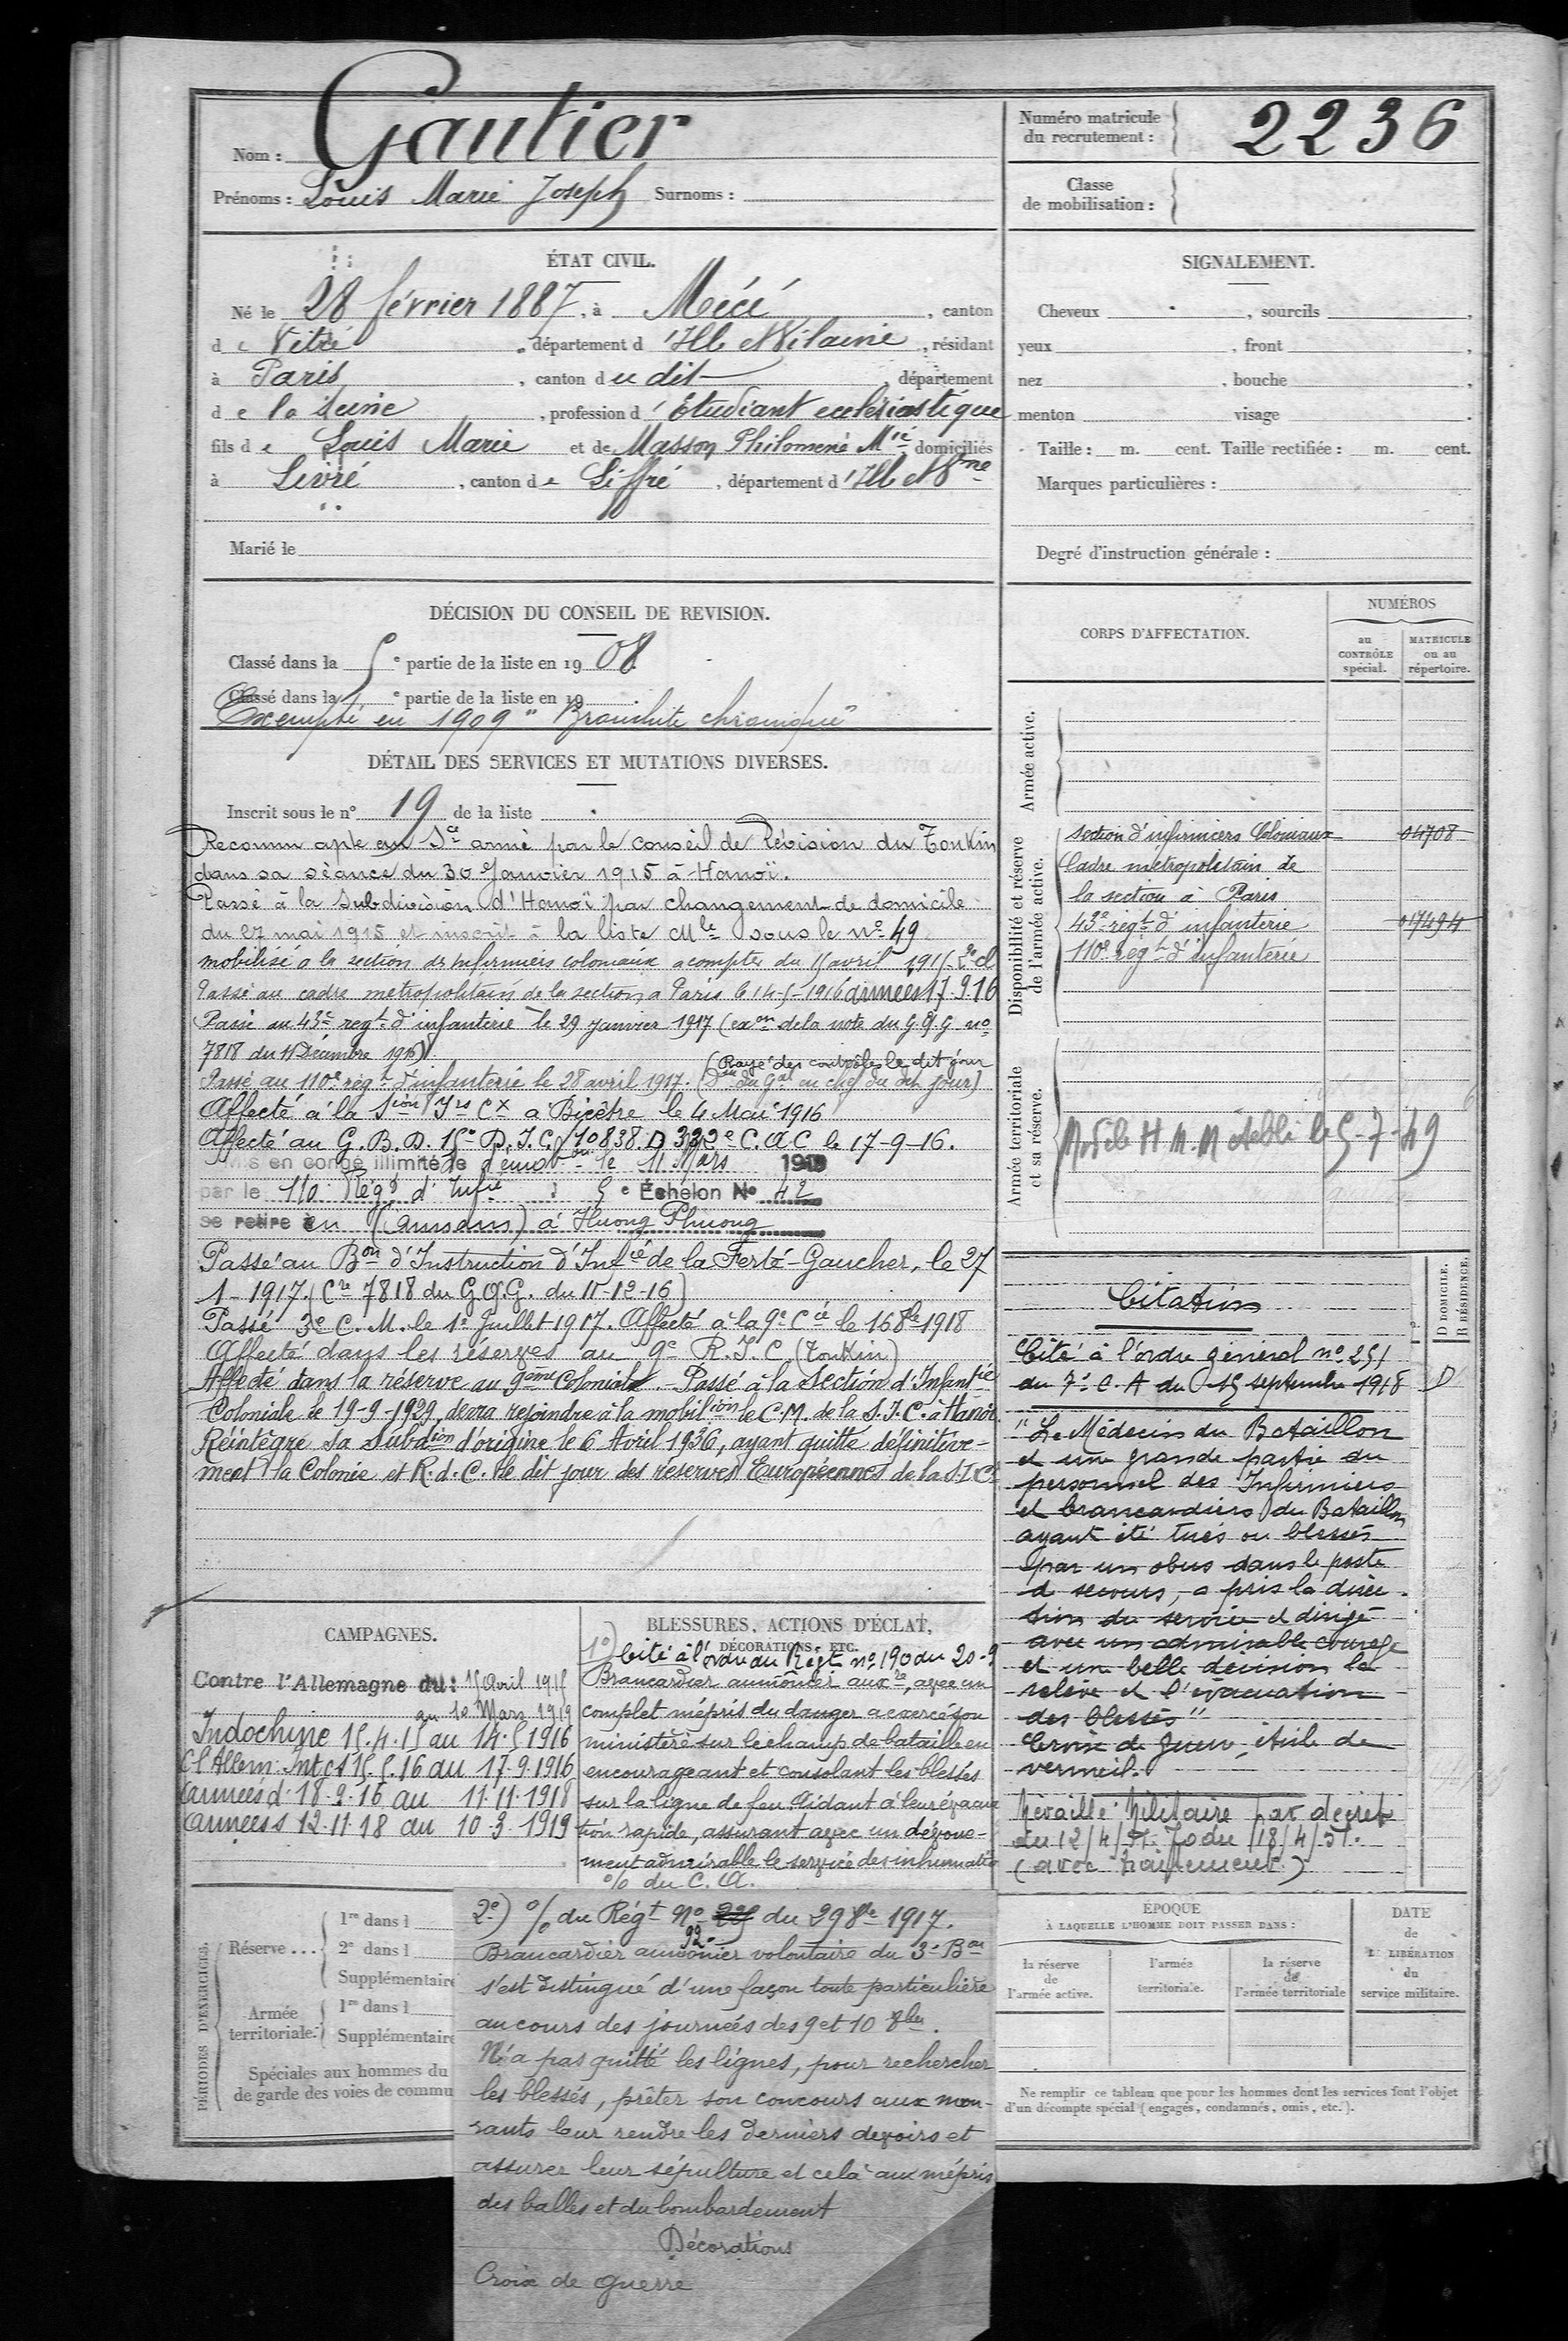 Nom : Gautier
Prénoms : Louis Marie Joseph Surnoms :
Numéro matricule
du recrutement : 2236
Classe
de mobilisation :
ÉTAT CIVIL.
Né le 28 février 1887, à Mécé, canton
de Vitré, département d'Ille et Vilaine, résidant
à Paris, canton du dit, département
de la Seine, profession d'Etudiant ecclésiastique
fils de Louis Marie et de Masson Philomène Mie domiciliés
à Livré, canton de Liffré, département d'Ille et Vne
Marié le
SIGNALEMENT.
Cheveux , sourcils ,
yeux , front ,
nez , bouche ,
menton visage .
Taille : m. cent. Taille rectifiée : m. cent.
Marques particulières :
Degré d'instruction générale :
DÉCISION DU CONSEIL DE REVISION.
Classé dans la 5e partie de la liste en 1908
Classé dans la e partie de la liste en 19
Exempté en 1909 "Bronchite chronique"
DÉTAIL DES SERVICES ET MUTATIONS DIVERSES.
Inscrit sous le n° 19 de la liste
Reconnu apte au Sce armé par le conseil de Révision du Tonkin
dans sa séance du 30 Janvier 1915 à Hanoï.
Passé à la Subdivision d'Hanoï par changement de domicile
du 27 mai 1915 et inscrit à la liste Mle sous le n° 49
mobilisé à la section des Infirmiers coloniaux a compter du 15 avril 1915. 2e cl
Passé au cadre métropolitain de la section a Paris le 14-5-1916 armées 17.9.16
Passé au 43e regt d'infanterie le 29 janvier 1917 (exon de la note du G.Q.G no
7818 du 11 Décembre 1916)
(Rayé des contrôles le dit jour
Passé au 110e régt d'infanterie le 28 avril 1917. (Don du Gal en chef du dit jour)
Affecté à la Sion Irs Cx à Bicêtre le 4 Mai 1916
Affecté au G.B.D. 15e D.I.C. (10838.D 332e C.A.C le 17-9-16.
Mis en congé illimité de démobon le 11 Mars 1919
par le 110 Régt d'Infie 5e Échelon No 42
se retire en (Annam) à Huong Phuong
Passé au Bon d'Instruction d'Infie de la Ferté-Gaucher, le 27
1-1917. (Cre 7818 du G.Q.G. du 11-12-16)
Passé 3e C.M. le 1e Juillet 1917. Affecté à la 9e Cie le 16 8bre 1918
Affecté dans les réserves au 9e R.I.C. (Tonkin)
Affecté dans la réserve au 9ème Colonial. - Passé à la Section d'Infantie
Coloniale le 19-9-1929, devra rejoindre à la mobilion le C.M. de la S.I.C. à Hanoï.
Réintègre sa subdion d'origine le 6 Avril 1936, ayant quitté définitive-
ment la Colonie et R.d.C. le dit jour des réserves Européennes de la S.I.C.
CORPS D'AFFECTATION.
NUMÉROS
au CONTRÔLE spécial.
MATRICULE ou au répertoire.
Armée active.
Disponibilité et réserve de l'armée active.
Section d'infirmiers Coloniaux 04708
Cadre métropolitain de
la section à Paris
43e regt d'infanterie 017494
110e regt d'infanterie
Armée territoriale et sa réserve.
le 5-7-49
D DOMICILE.
R RÉSIDENCE.
D
Citation
Cité à l'ordre général no 251
du 7e C.A du 15 septembre 1918
"Le Médecin du Bataillon
et une grande partie du
personnel des Infirmiers
et brancardiers du Bataillon
ayant été tués ou blessés
par un obus dans le poste
d secours, a pris la direc-
tion du service et dirigé
avec un admirable courage
et un belle décision la
relève et l'évacuation
des blessés"
Croix de guerre, étoile de
vermeil.
Médaille Militaire par décret
du 12/4/51. Jo du 18/4/51.
(avec traitement)
CAMPAGNES.
Contre l'Allemagne du : 15 Avril 1915
au 10 Mars 1919
Indochine 15.4.15 au 14.5.1916
Ct Allem. Int ct 15.5.16 au 17.9.1916
armées d. 18.9.16 au 11.11.1918
armées s 12.11.18 au 10.3.1919
BLESSURES, ACTIONS D'ÉCLAT,
DÉCORATIONS, ETC.
1°) Cité à l'ordre du Régt no 190 du 20-9
Brancardier aumônier aux , avec un
complet mépris du danger a exercé son
ministère sur le champ de bataille en
encourageant et consolant les blessés
sur la ligne de feu. Aidant à leur évacua
tion rapide, assurant avec un dévoue-
ment admirable le service des inhumatio
% du C.A.
2e) % du Régt No 92 du 29 8bre 1917.
Brancardier aumônier volontaire du 3e Bon
s'est distingué d'une façon toute particulière
au cours des journées des 9 et 10 8bre.
N'a pas quitté les lignes, pour rechercher
les blessés, prêter son concours aux mou-
rants leur rendre les derniers devoirs et
assurer leur sépulture et cela au mépris
des balles et du bombardement
Décorations
Croix de guerre
PÉRIODES D'EXERCICES.
Réserve ... 1re dans l
2e dans l
Supplémentaire
Armée territoriale. 1re dans l
Supplémentaire
Spéciales aux hommes du
de garde des voies de commu
ÉPOQUE
À LAQUELLE L'HOMME DOIT PASSER DANS :
la réserve de l'armée active.
l'armée territoriale.
la réserve de l'armée territoriale
DATE de LA LIBÉRATION du service militaire.
Ne remplir ce tableau que pour les hommes dont les services font l'objet
d'un décompte spécial (engagés, condamnés, omis, etc.).